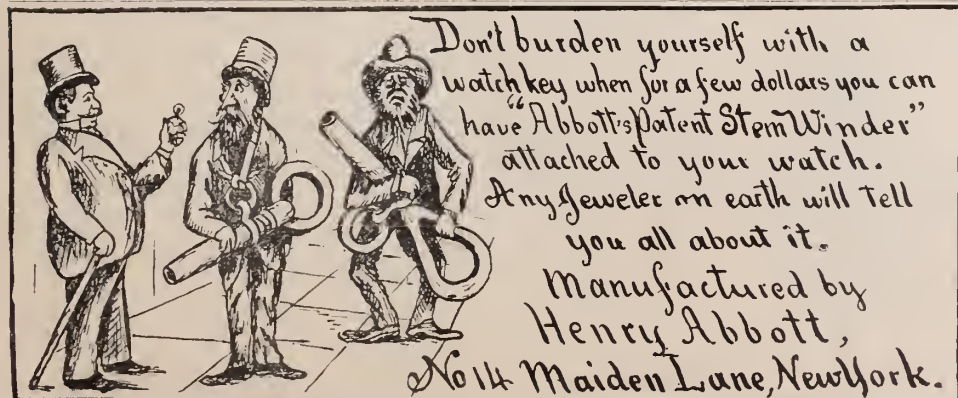 Don't burden yourself with a
watch key when for a few dollars you can
have "Abbott's Patent Stem Winder"
attached to your watch.
Any Jeweler on earth will tell
you all about it.
Manufactured by
Henry Abbott,
No 14 Maiden Lane, New York.